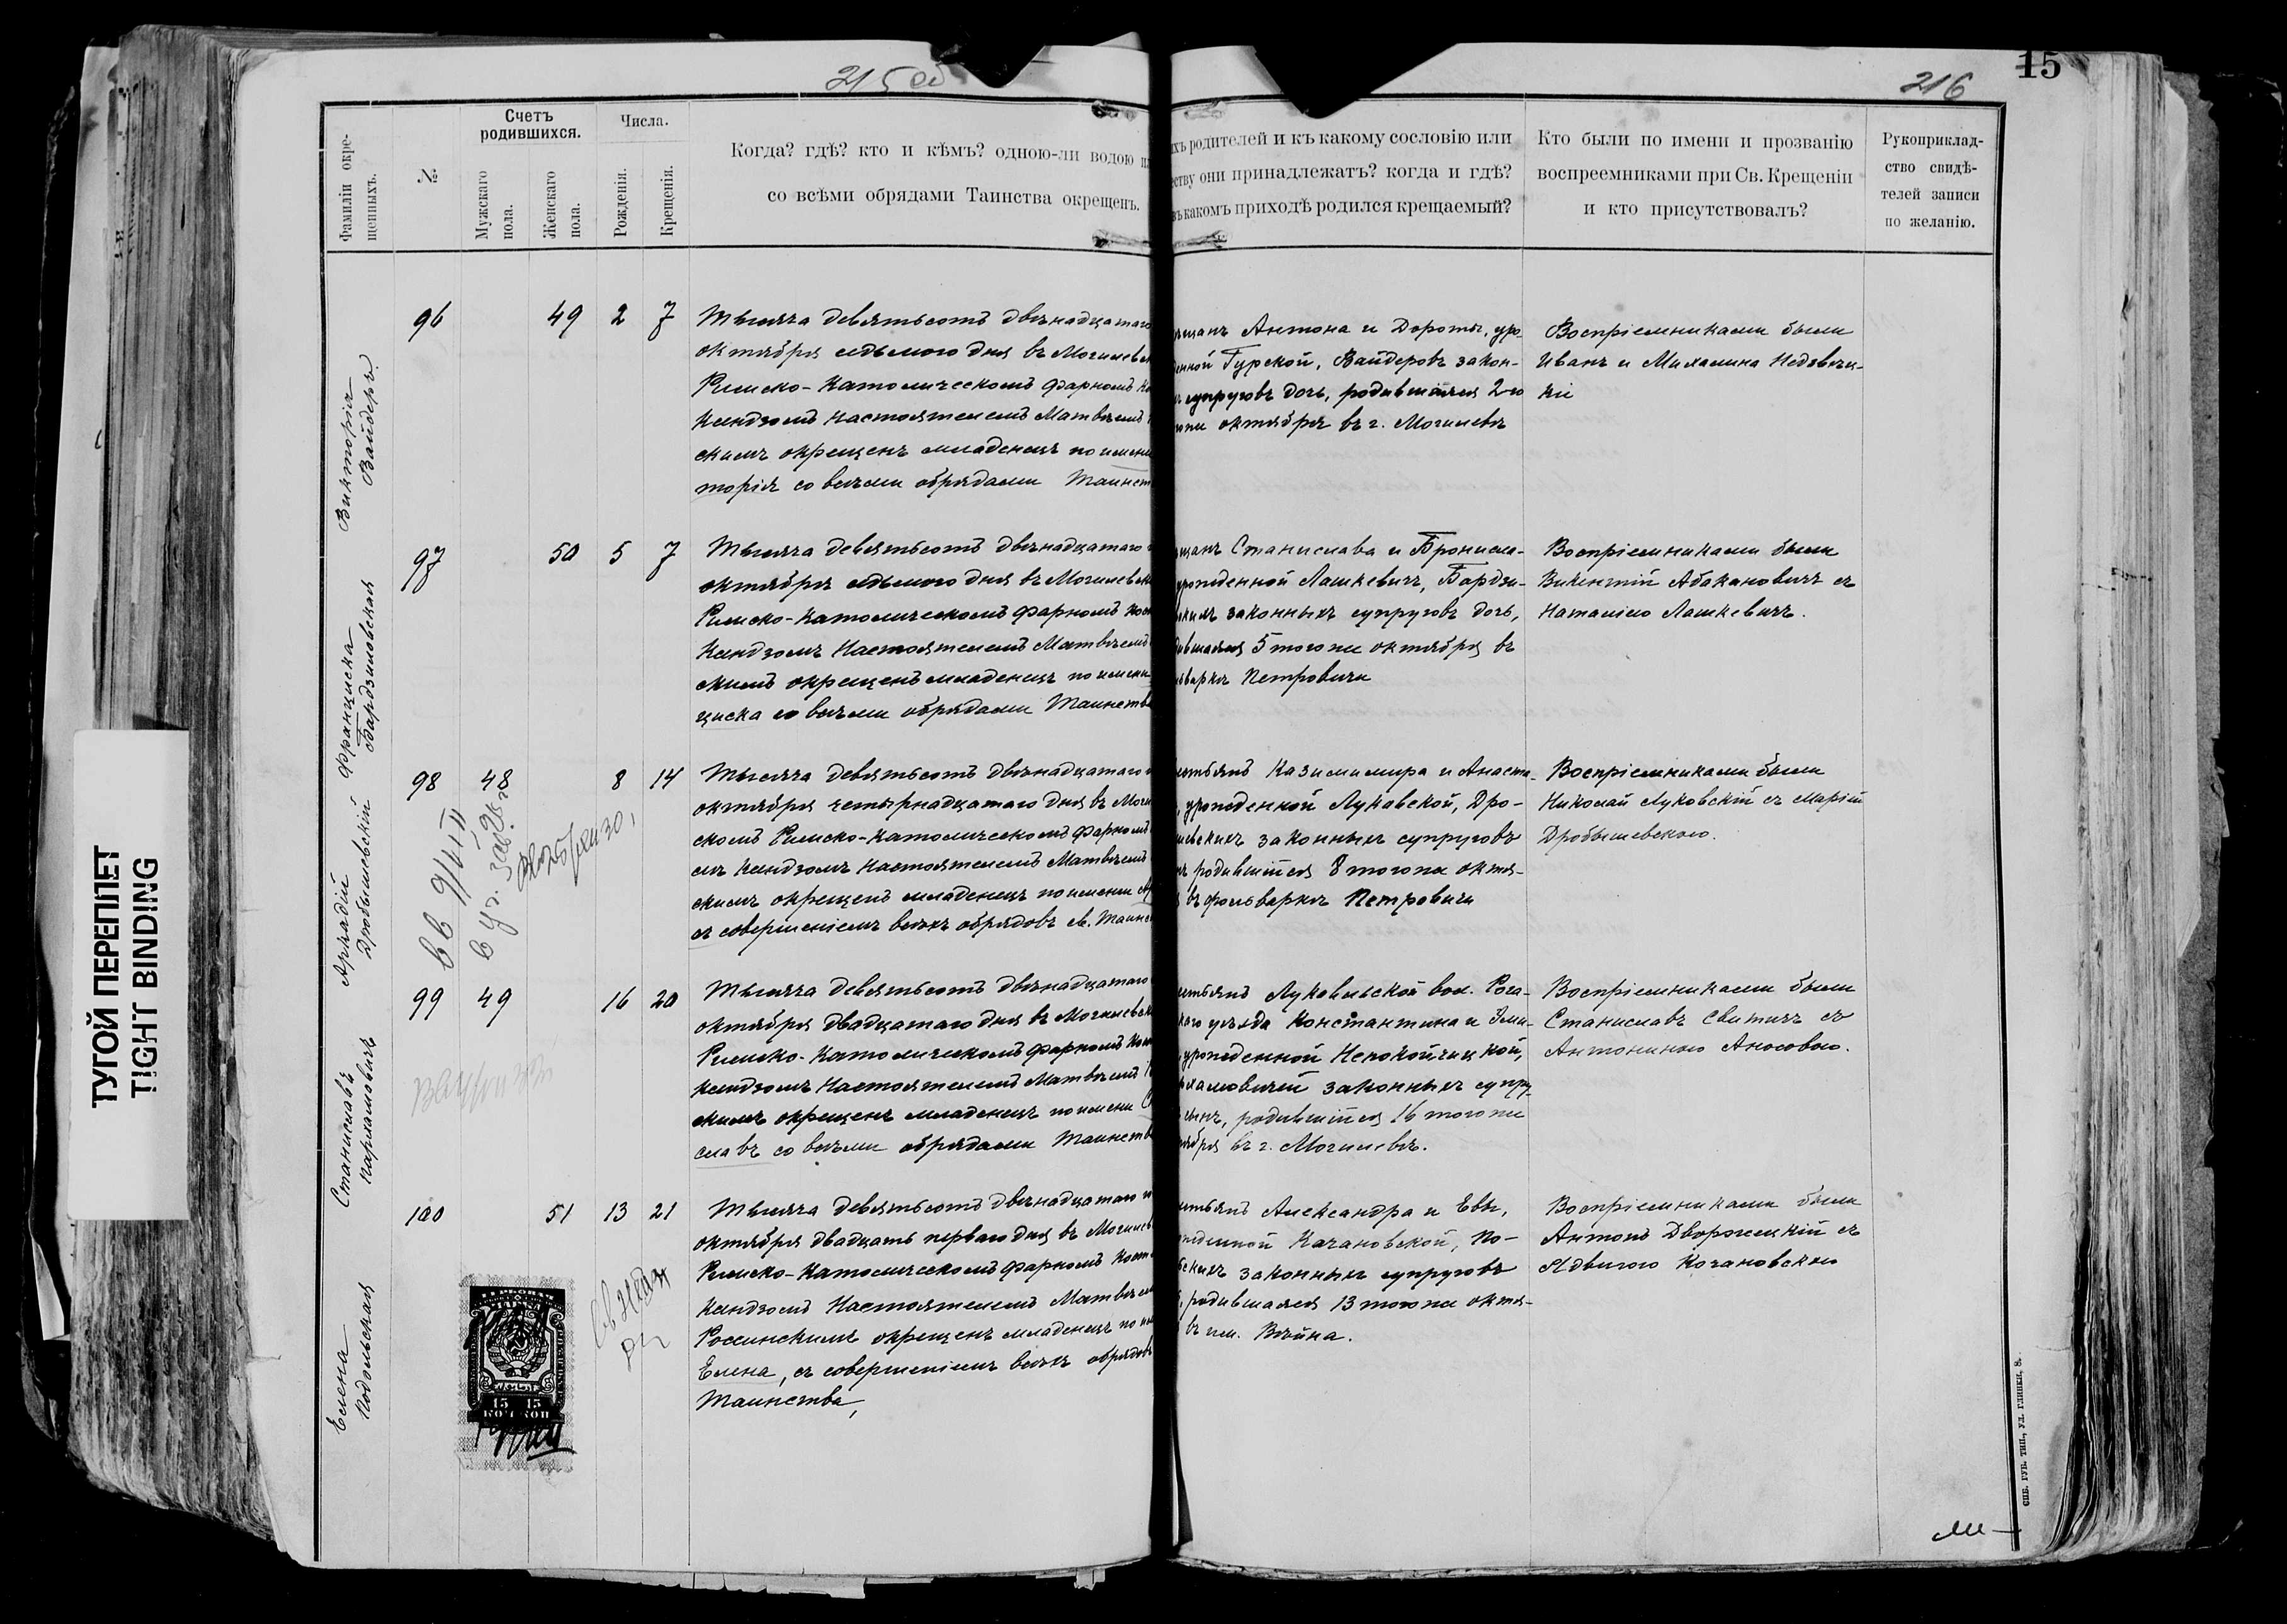 215 об
216
15
Фамиліи окре-
щенныхъ.
№
Счетъ
родившихся.
Мужскаго
пола.
Женскаго
пола.
Числа.
Рожденія.
Крещенія.
Когда? гдѣ? кто и кѣмъ? одною-ли водою и
со всѣми обрядами Таинства окрещенъ.
хъ родителей и къ какому сословію или
ству они принадлежатъ? когда и гдѣ?
въ какомъ приходѣ родился крещаемый?
Кто были по имени и прозванію
воспреемниками при Св. Крещеніи
и кто присутствовалъ?
Рукоприклад-
ство свидѣ-
телей записи
по желанію.
Викторія
Вайдеръ
96
49 2 7
Тысяча девятьсотъ двѣнадцатаго
октября седьмого дня въ Могилевск
Римско-Католическомъ фарномъ Ко
Ксендзомъ Настоятелемъ Матвѣемъ
скимъ окрещенъ младенецъ по имени
торія со всѣми обрядами Таинст
щанъ Антона и Дороты, уро-
денной Гурской, Вайдеровъ закон-
супруговъ дочь, родившаяся 2-го
октября въ г. Могилевѣ
Воспріемниками были
Иванъ и Михалина Недзвѣц-
кіе
Франциска
Бардзиловская
97
50 5 7
Тысяча девятьсотъ двѣнадцатаго
октября седьмого дня въ Могилевск
Римско-Католическомъ фарномъ Кос
Ксендзомъ Настоятелемъ Матвѣемъ
скимъ окрещенъ младенецъ по имени
циска со всѣми обрядами Таинства
щанъ Станислава и Брониспа-
урожденной Лашкевичъ, Бардзи-
скихъ законныхъ супруговъ дочь,
дившаяся 5 того же октября въ
льваркѣ Петровичи
Воспріемниками были
Викентій Абакановичъ съ
Наталіею Лашкевичъ.
Аркадій
Дробышевскій
98 48
8 14
Тысяча девятьсотъ двѣнадцатаго
октября четырнадцатаго дня въ Моги
скомъ Римско-Католическомъ фарномъ
лѣ Ксендзомъ Настоятелемъ Матвѣемъ
скимъ окрещенъ младенецъ по имени Ар
съ совершеніемъ всѣхъ обрядовъ св. Таинс
стьянъ Казимимира и Анаста-
урожденной Луковской, Дро-
шевскихъ законныхъ супруговъ
родившійся 8 того же октя-
въ фольваркѣ Петровичи
Воспріемниками были
Николай Луковскій съ Маріей
Дробышевскою.
Станиславъ
Кархамовичъ
99 49
16 20
Тысяча девятьсотъ двѣнадцатаго
октября двадцатаго дня въ Могилевск
Римско-Католическомъ фарномъ Кос
Ксендзомъ Настоятелемъ Матвѣемъ
скимъ окрещенъ младенецъ по имени С
славъ со всѣми обрядами Таинств
стьянъ Луковльской вол. Рога-
каго уѣзда Константина и Эми-
урожденной Непокойчицкой,
хамовичей законныхъ супру-
сынъ, родившійся 16 того же
ября въ г. Могилевѣ.
Воспріемниками были
Станиславъ Свитичъ съ
Антониною Аносовою.
Елена
Подольская
100
51 13 21
Тысяча девятьсотъ двѣнадцатаго
октября двадцать перваго дня въ Могилев
Римско-Католическомъ фарномъ Кост
Ксендзомъ Настоятелемъ Матвѣем
Россинскимъ окрещенъ младенецъ по им
Елена, съ совершеніемъ всѣхъ обрядовъ
Таинства,
стьянъ Александра и Евы,
жденной Качановской, По-
скихъ законныхъ супруговъ
родившаяся 13 того же октя-
въ им. Вѣйна.
Воспріемниками были
Антонъ Дворжецкій съ
Ядвигою Качановскою
15 15
КОП КОП
ТУГОЙ ПЕРЕПЛЕТ
TIGHT BINDING
СПБ. ГУБ. ТИП., УЛ. ГЛИНКИ, 8.